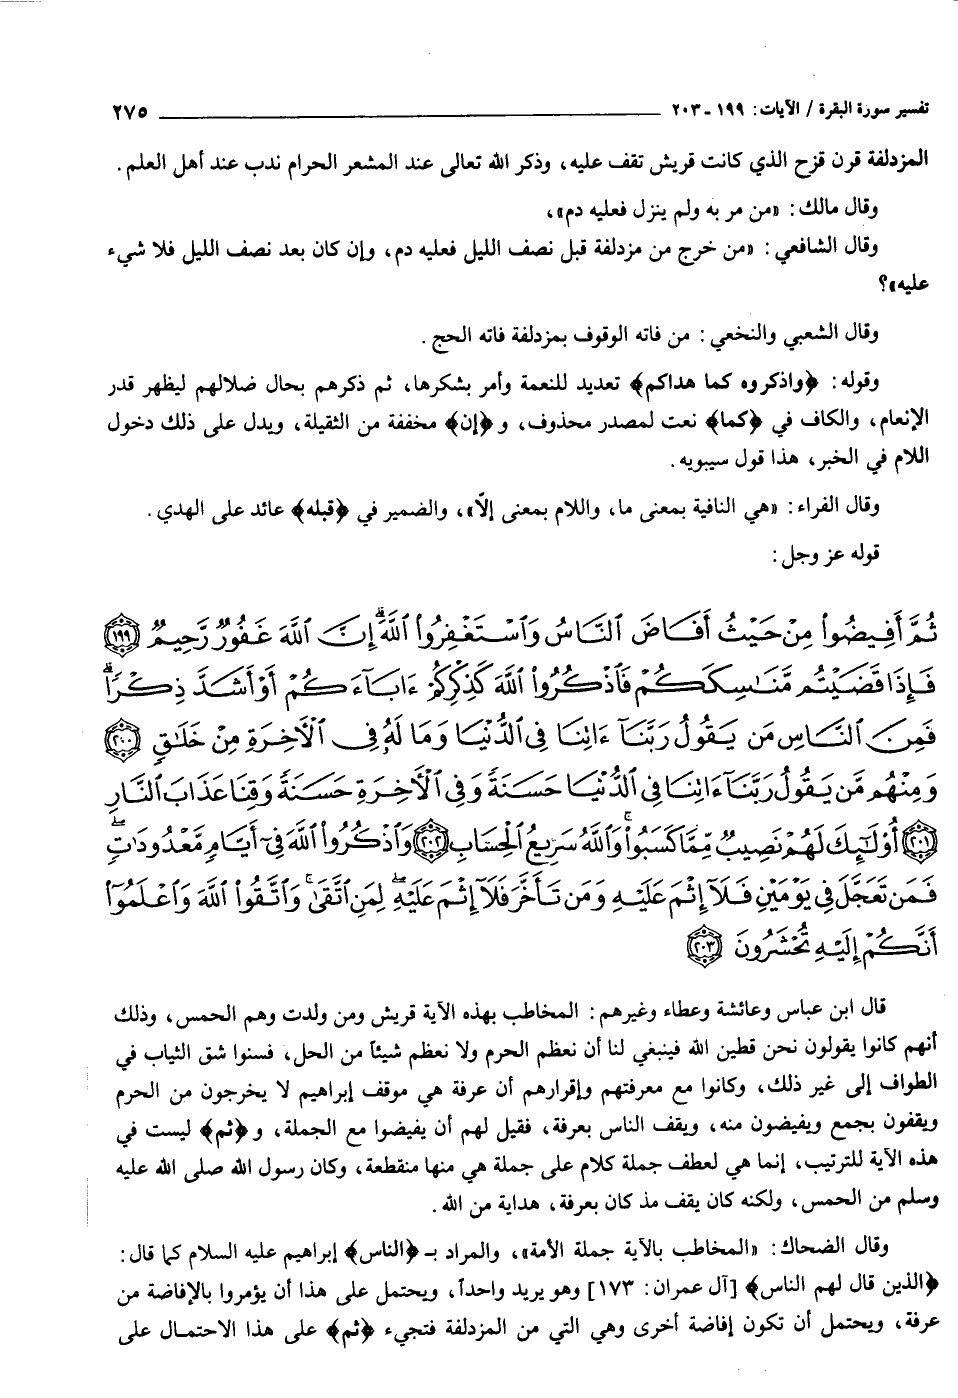 تفسير سورة البقرة / الآيات: ١٩٩ ـ ٢٠٣ ٢٧٥
المزدلفة قرن قزح الذي كانت قريش تقف عليه، وذكر الله تعالى عند المشعر الحرام ندب عند أهل العلم.
وقال مالك: «من مر به ولم ينزل فعليه دم»،
وقال الشافعي: «من خرج من مزدلفة قبل نصف الليل فعليه دم، وإن كان بعد نصف الليل فلا شيء
عليه»؟
وقال الشعبي والنخعي: من فاته الوقوف بمزدلفة فاته الحج.
وقوله: ﴿واذكروه كما هداكم﴾ تعديد للنعمة وأمر بشكرها، ثم ذكرهم بحال ضلالهم ليظهر قدر
الإنعام، والكاف في ﴿كما﴾ نعت لمصدر محذوف، و﴿إن﴾ مخففة من الثقيلة، ويدل على ذلك دخول
اللام في الخبر، هذا قول سيبويه.
وقال الفراء: «هي النافية بمعنى ما، واللام بمعنى إلاّ»، والضمير في ﴿قبله﴾ عائد على الهدي.
قوله عز وجل:
ثُمَّ أَفِيضُوا۟ مِنْ حَيْثُ أَفَاضَ ٱلنَّاسُ وَٱسْتَغْفِرُوا۟ ٱللَّهَ ۚ إِنَّ ٱللَّهَ غَفُورٌ رَّحِيمٌ ١٩٩
فَإِذَا قَضَيْتُم مَّنَـٰسِكَكُمْ فَٱذْكُرُوا۟ ٱللَّهَ كَذِكْرِكُمْ ءَابَآءَكُمْ أَوْ أَشَدَّ ذِكْرًا ۗ
فَمِنَ ٱلنَّاسِ مَن يَقُولُ رَبَّنَآ ءَاتِنَا فِى ٱلدُّنْيَا وَمَا لَهُۥ فِى ٱلْـَٔاخِرَةِ مِنْ خَلَـٰقٍ ٢٠٠
وَمِنْهُم مَّن يَقُولُ رَبَّنَآ ءَاتِنَا فِى ٱلدُّنْيَا حَسَنَةً وَفِى ٱلْـَٔاخِرَةِ حَسَنَةً وَقِنَا عَذَابَ ٱلنَّارِ
٢٠١ أُو۟لَـٰٓئِكَ لَهُمْ نَصِيبٌ مِّمَّا كَسَبُوا۟ ۚ وَٱللَّهُ سَرِيعُ ٱلْحِسَابِ ٢٠٢ وَٱذْكُرُوا۟ ٱللَّهَ فِىٓ أَيَّامٍ مَّعْدُودَٰتٍ ۚ
فَمَن تَعَجَّلَ فِى يَوْمَيْنِ فَلَآ إِثْمَ عَلَيْهِ وَمَن تَأَخَّرَ فَلَآ إِثْمَ عَلَيْهِ ۖ لِمَنِ ٱتَّقَىٰ ۗ وَٱتَّقُوا۟ ٱللَّهَ وَٱعْلَمُوٓا۟
أَنَّكُمْ إِلَيْهِ تُحْشَرُونَ ٢٠٣
قال ابن عباس وعائشة وعطاء وغيرهم: المخاطب بهذه الآية قريش ومن ولدت وهم الحمس، وذلك
أنهم كانوا يقولون نحن قطين الله فينبغي لنا أن نعظم الحرم ولا نعظم شيئاً من الحل، فسنوا شق الثياب في
الطواف إلى غير ذلك، وكانوا مع معرفتهم وإقرارهم أن عرفة هي موقف إبراهيم لا يخرجون من الحرم
ويقفون بجمع ويفيضون منه، ويقف الناس بعرفة، فقيل لهم أن يفيضوا مع الجملة، و﴿ثم﴾ ليست في
هذه الآية للترتيب، إنما هي لعطف جملة كلام على جملة هي منها منقطعة، وكان رسول الله صلى الله عليه
وسلم من الحمس، ولكنه كان يقف مذ كان بعرفة، هداية من الله.
وقال الضحاك: «المخاطب بالآية جملة الأمة»، والمراد بـ﴿الناس﴾ إبراهيم عليه السلام كما قال:
﴿الذين قال لهم الناس﴾ [آل عمران: ١٧٣] وهو يريد واحداً، ويحتمل على هذا أن يؤمروا بالإفاضة من
عرفة، ويحتمل أن تكون إفاضة أخرى وهي التي من المزدلفة فتجيء ﴿ثم﴾ على هذا الاحتمال على